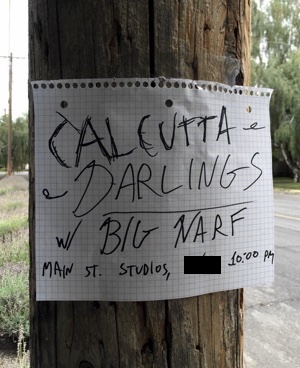 CALCUTTA
DARLINGS
w/ BIG NARF
MAIN ST. STUDIOS, 10:00 PM